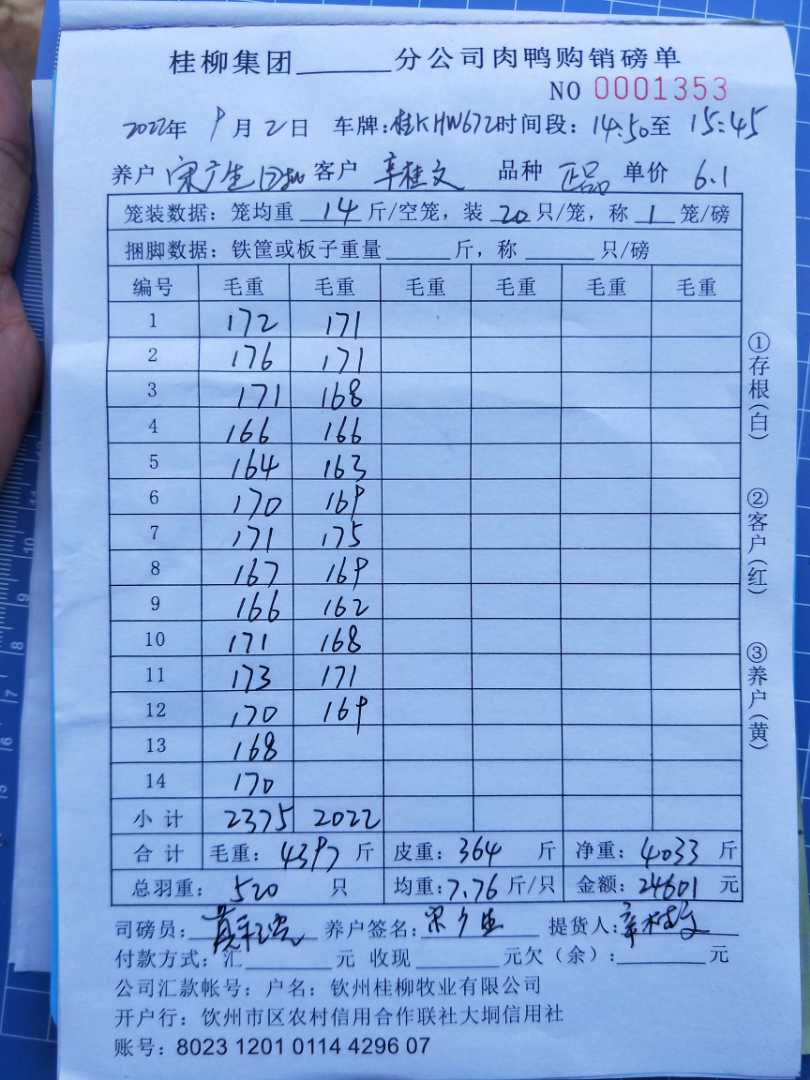 桂柳集团______分公司肉鸭购销磅单
NO 0001353
2022年 9月21日 车牌:桂KHW672时间段:14:50至 15:45
养户 宋广生 客户 辛桂文 品种 正品 单价 6.1
笼装数据:笼均重 14 斤/空笼,装 20 只/笼,称 1 笼/磅
捆脚数据:铁筐或板子重量______斤,称______只/磅
编号 毛重 毛重 毛重 毛重 毛重 毛重
1 172 171
2 176 171
3 171 168
4 166 166
5 164 163
6 170 169
7 171 175
8 167 169
9 166 162
10 171 168
11 173 171
12 170 169
13 168
14 170
小计 2375 2022
合计 毛重:4397 斤 皮重:364 斤 净重:4033 斤
总羽重:520 只 均重:7.76 斤/只 金额:24601 元
司磅员: 养户签名:宋广生 提货人:辛桂文
付款方式:汇______元 收现______元欠(余):______元
公司汇款帐号:户名:钦州桂柳牧业有限公司
开户行:钦州市区农村信用合作联社大垌信用社
账号:8023 1201 0114 4296 07
①存根(白)
②客户(红)
③养户(黄)